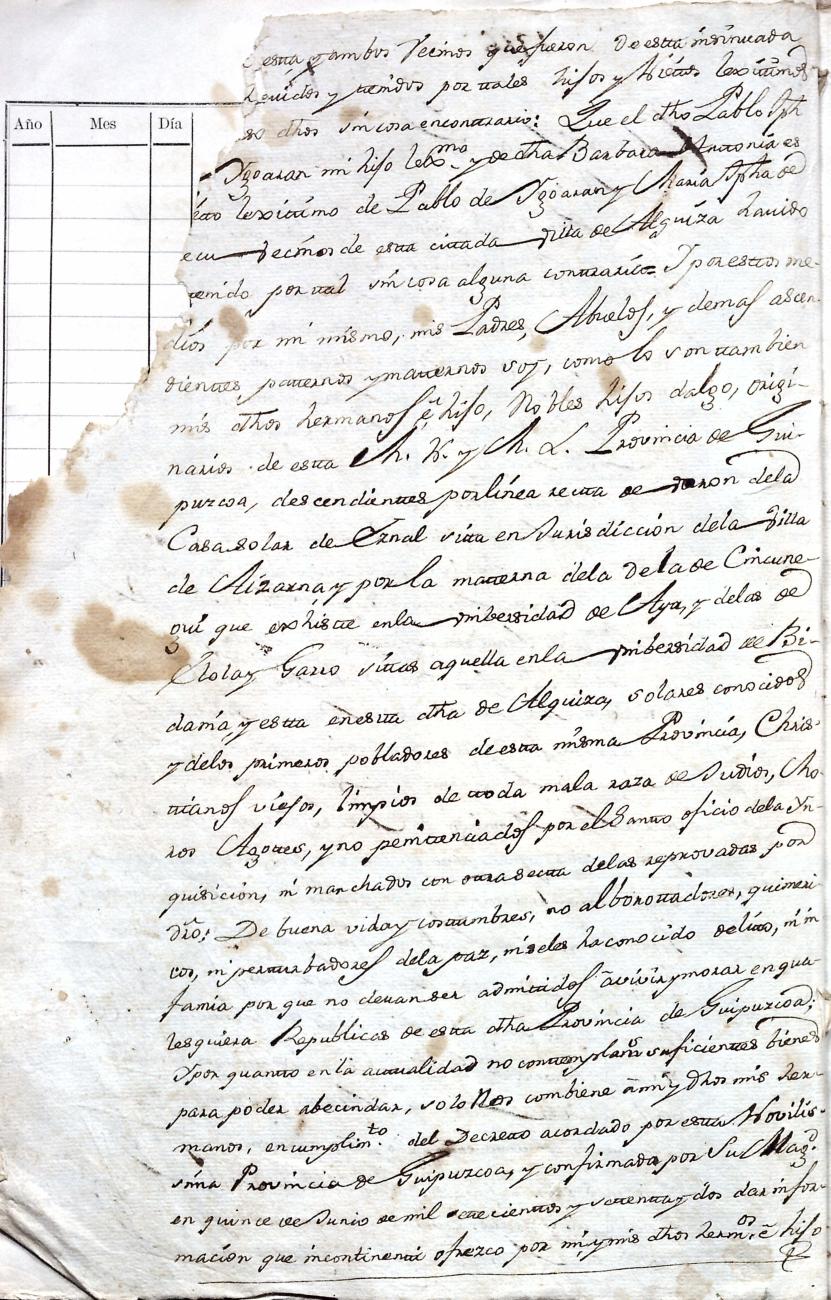 esta, y ambos Vecinos que fueron De esta insinuada
hauidos y tenidos por tales hijos y Nietos lexitimos
dhos sin cosa encontrario: Que el dho Pablo Jph
Año Mes Día
Ygoaran mi hijo lexmo y de dha Barbara Antonia es
lexitimo de Pablo de Ygoaran y Maria Jpha de
Vecinos de esta citada Villa de Alquiza havido
tenido por tal sin cosa alguna contraria. Y por estos me-
dios por mi mismo, mis Padres, Abuelos, y demas ascen-
dientes paternos y maternos soy, como lo son tambien
mis dhos hermanos é hijo, Nobles hijos dalgo, origi-
narios de esta M. N. y M. L. Provincia de Gui-
puzcoa, descendientes por línea recta de varon dela
Casa solar de Eznal sita en Jurisdicción dela Villa
de Aizarna y por la materna dela de la de Cincune-
gui que exhiste enla Unibersidad de Aya, y delas de
Elola y Garro sitas aquella enla Unibersidad de Bi-
dania, y esta en esta dha de Alquiza, solares conocidos
y delos primeros pobladores de esta misma Provincia, Chris-
tianos viejos, limpios de toda mala raza de Judios, Mo-
ros Agotes, y no penitenciados por el Santo oficio dela Yn-
quisición, ni manchados con otra secta delas reprovadas por
dro: De buena vida y costumbres, no alborottadores, quimeri
cos, ni perturbadores dela paz, ni seles ha conocido delito, ni in
famia por que no devan ser admitidos á vivir y morar en qua-
lesquiera Republicas de esta dha Provincia de Guipuzcoa:
Y por quanto en la actualidad no contemplams suficientes bienes
para poder abecindar, solo Nos combiene á mi y dhos mis her-
manos, en cumplimto del Decreto acordado por esta Novilis-
sima Provincia de Guipuzcoa, y confirmado por Su Magd
en quince de Junio de mil setecientos y setenta y dos dar infor-
macion que incontinenti ofrezco por mi, y mis dhos hermos é hijo